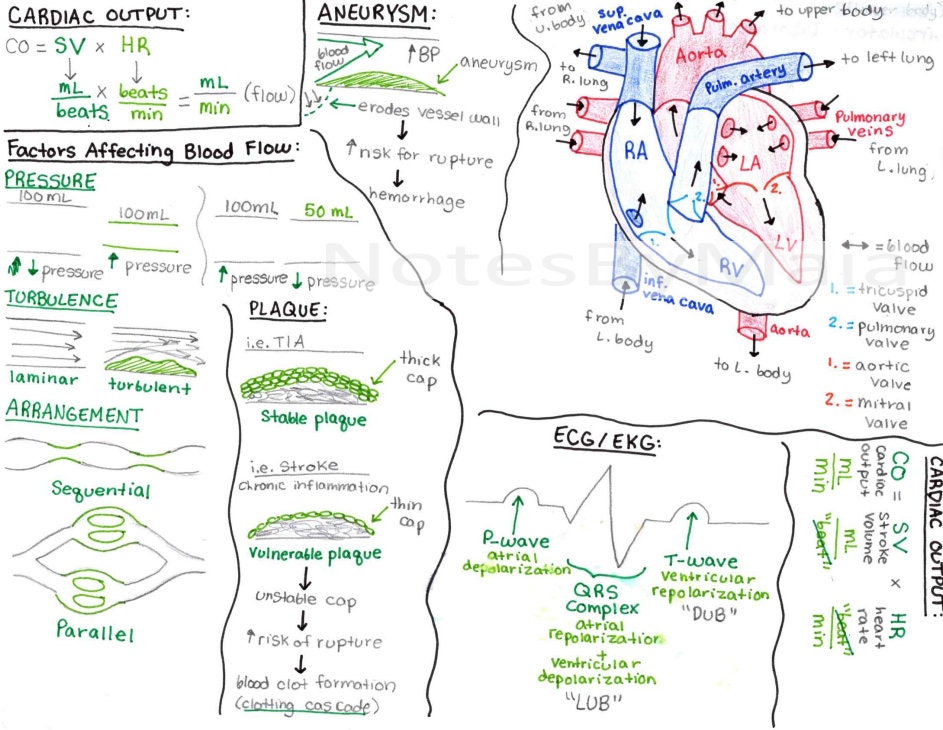 CARDIAC OUTPUT:
CO = SV x HR
mL x beats = mL (flow)
beats min min
ANEURYSM:
blood
flow
↑BP
aneurysm
erodes vessel wall
↑ risk for rupture
hemorrhage
from
u.body
sup.
vena cava
Aorta
to upper body
to
R. lung
Pulm. artery
to left lung
from
R.lung
Pulmonary
veins
from
L. lung
RA
LA
1.
2.
2.
1.
LV
RV
inf.
vena cava
from
L. body
aorta
to L. body
↔ = blood
flow
1. = tricuspid
valve
2. = pulmonary
valve
1. = aortic
valve
2. = mitral
valve
NotesByMaia
Factors Affecting Blood Flow:
PRESSURE
100mL
100mL
↓ pressure
↑ pressure
100mL
50 mL
↑ pressure
↓ pressure
TURBULENCE
laminar
turbulent
ARRANGEMENT
Sequential
Parallel
PLAQUE:
i.e. TIA
thick
cap
Stable plaque
i.e. Stroke
chronic inflammation
thin
cap
Vulnerable plaque
unstable cap
↑ risk of rupture
blood clot formation
(clotting cascade)
ECG/EKG:
P-wave
atrial
depolarization
QRS
Complex
atrial
repolarization
+
ventricular
depolarization
"LUB"
T-wave
ventricular
repolarization
"DUB"
CARDIAC OUTPUT:
CO = SV x HR
cardiac stroke heart
output volume rate
mL mL "beat"
min "beat" min